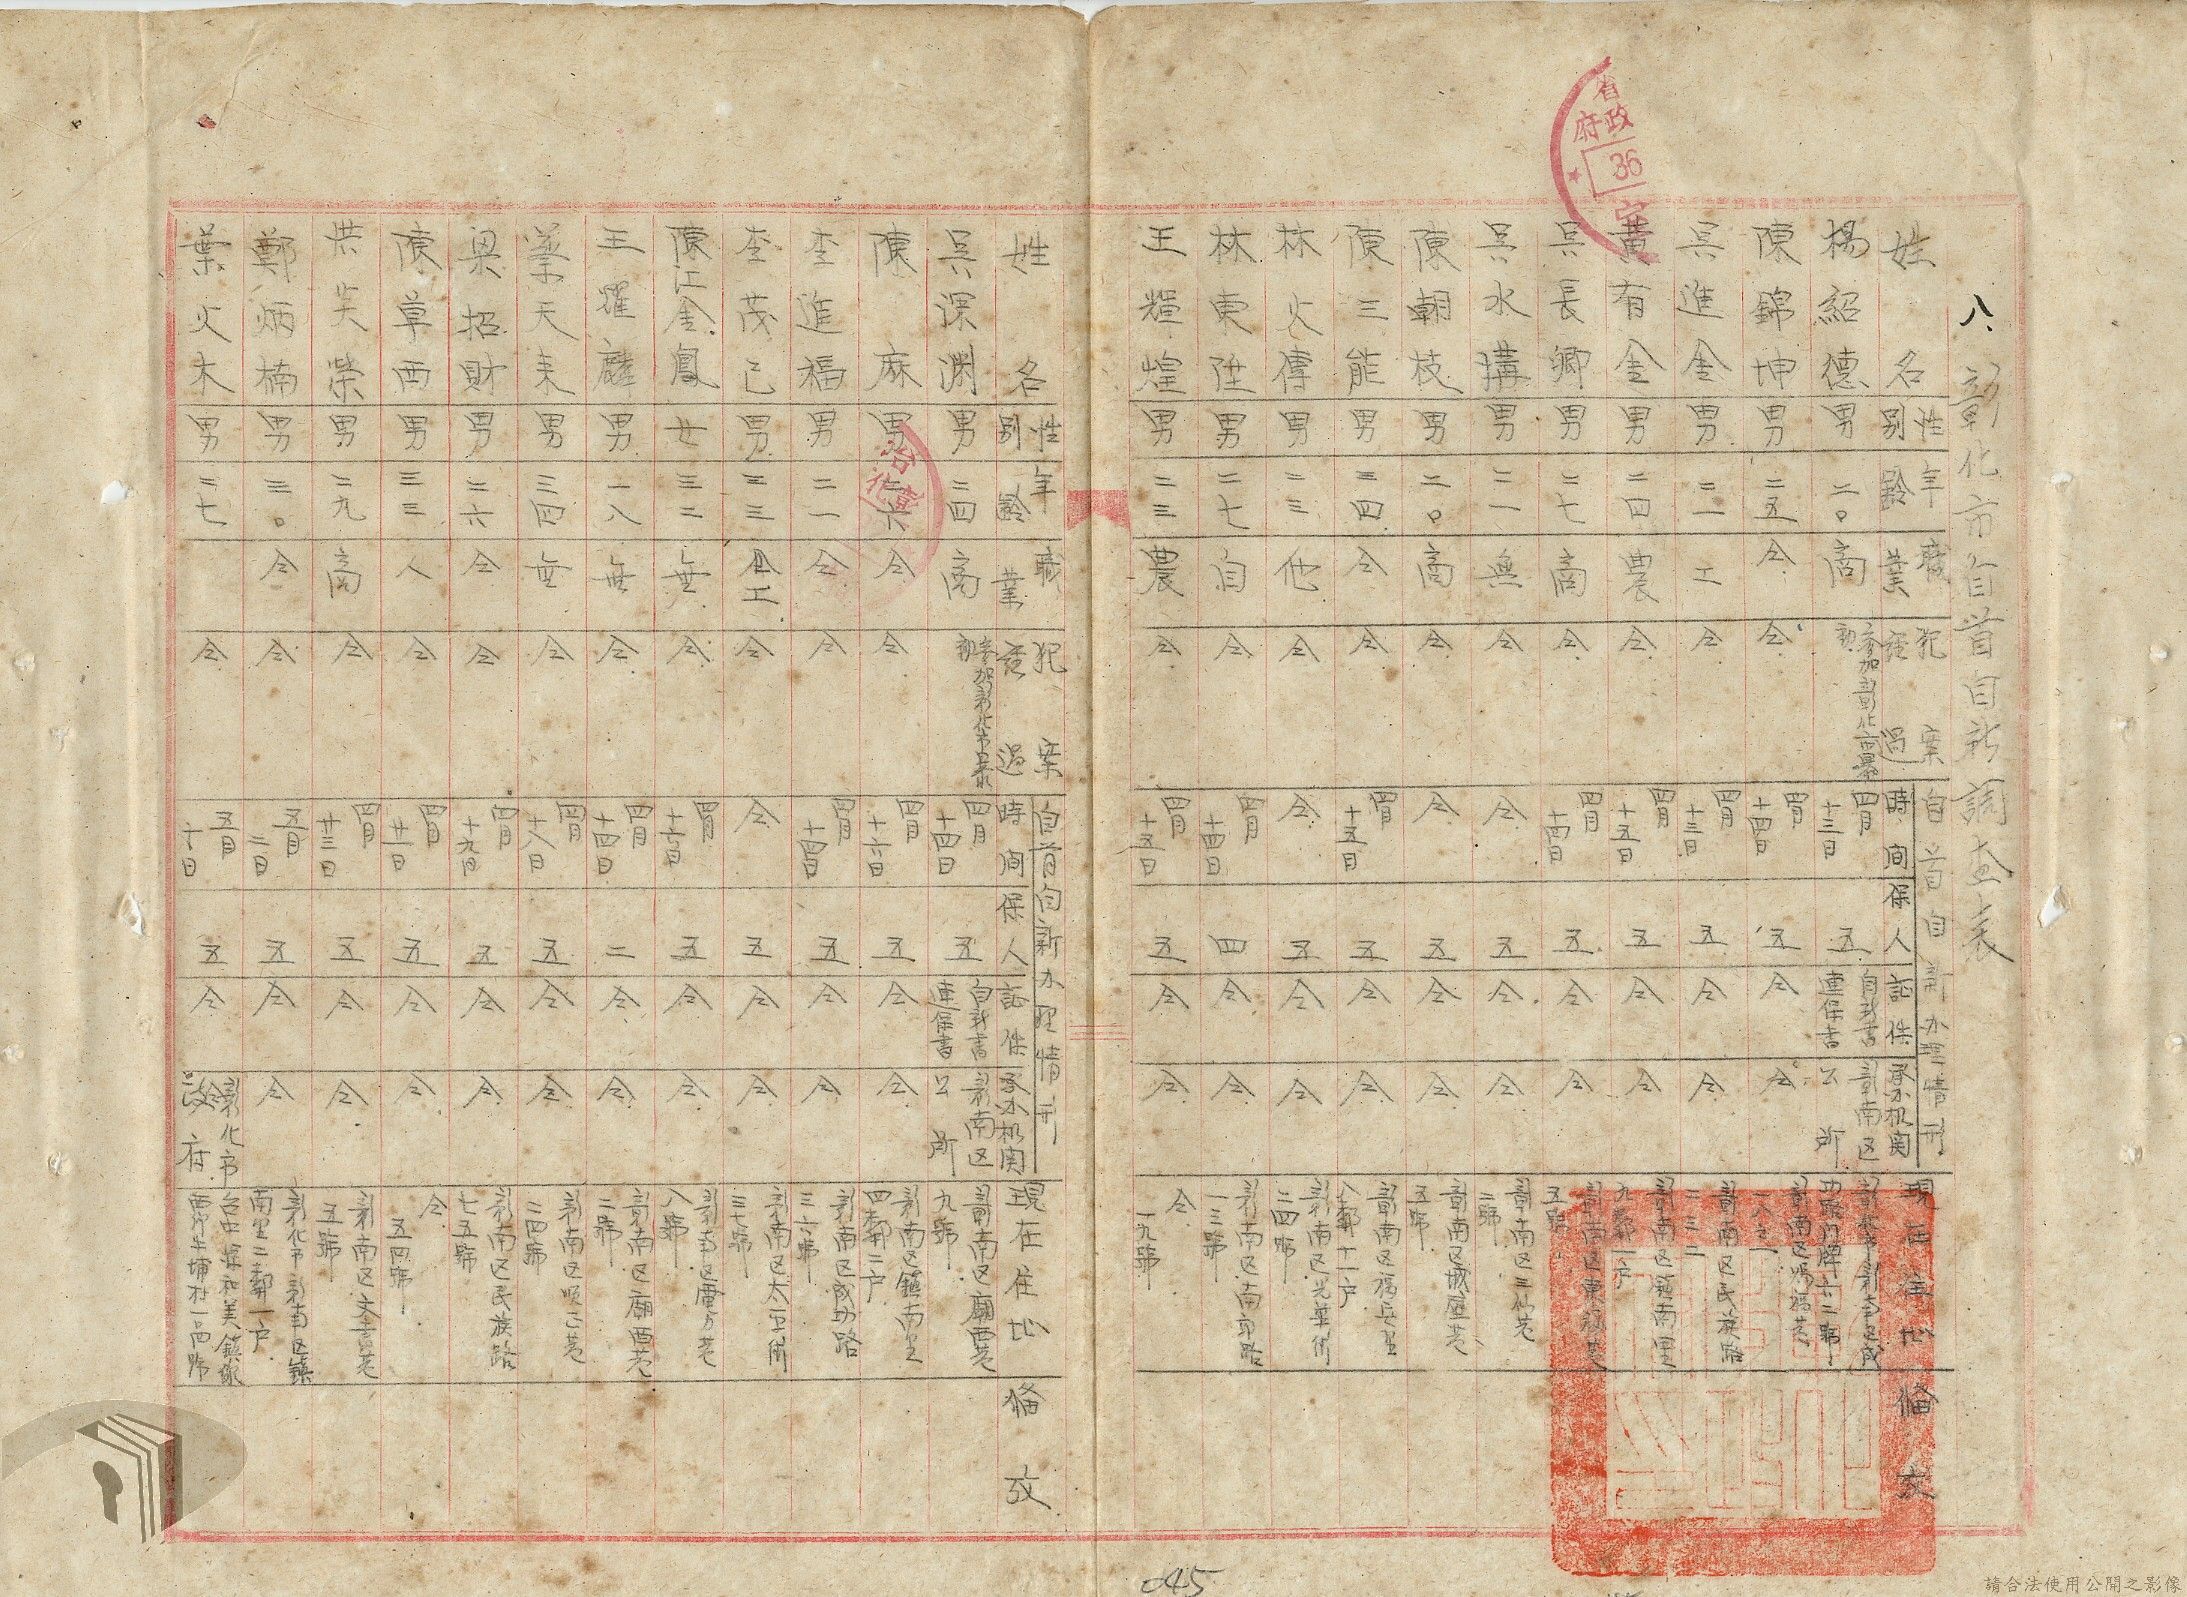 八、彰化市自首自新調查表
姓名 性別 年齡 職業 犯案經過 自首自新办理情形 時間 保人 証件 承办机関 現在住地 備攷
楊紹德 男 二〇 商 參加彰化市暴動 四月十三日 五 自新書 連保書 彰南区公所 彰化市彰南区成功路門牌六二號
陳錦坤 男 二五 仝 仝 四月十四日 五 仝 仝 彰南区賜福巷一八之一
吳進金 男 二一 工 仝 四月十三日 五 仝 仝 彰南区民族路二三二
黃有金 男 二四 農 仝 四月十五日 五 仝 仝 彰南区鎮南里九鄰一户
吳長卿 男 二七 商 仝 四月十四日 五 仝 仝 彰南区東巷五號
吳水溝 男 二一 無 仝 仝 五 仝 仝 彰南区三仙巷二號
陳朝枝 男 二〇 商 仝 仝 五 仝 仝 彰南区城隍巷五號
陳三能 男 三四 仝 仝 四月十五日 五 仝 仝 彰南区福兵里八鄰十一户
林火傳 男 二三 他 仝 仝 五 仝 仝 彰南区光華街二四號
林東陞 男 二七 自 仝 四月十四日 四 仝 仝 彰南区南郭路一三號
王輝煌 男 二三 農 仝 四月十五日 五 仝 仝 仝 一九號
姓名 性別 年齡 職業 犯案經過 自首自新办理情形 時間 保人 証件 承办机関 現在住地 備攷
吳深渊 男 三四 商 參加彰化市暴動 四月十四日 五 自新書 連保書 彰南区公所 彰南区廟西巷九號
陳麻 男 二六 仝 仝 四月十六日 五 仝 仝 彰南区鎮南里四鄰二户
李進福 男 二一 仝 仝 四月十四日 五 仝 仝 彰南区成功路三六號
李茂己 男 三三 工 仝 仝 五 仝 仝 彰南区太平街三七號
陳江金鳳 女 三二 無 仝 四月十六日 五 仝 仝 彰南区電力巷八號
王耀麟 男 一八 無 仝 四月十四日 二 仝 仝 彰南区廟西巷二號
葉天来 男 三四 無 仝 四月十八日 五 仝 仝 彰南区順正巷二四號
梁招財 男 二六 仝 仝 四月十九日 五 仝 仝 彰南区民族路七五號
陳草西 男 三三 人 仝 四月廿一日 五 仝 仝 仝 五四號
洪尖榮 男 二九 商 仝 四月廿三日 五 仝 仝 彰南区文言巷五號
鄭炳楠 男 三〇 仝 仝 五月二日 五 仝 仝 彰化市彰南区鎮南里二鄰一户
葉火木 男 二七 仝 五月十日 五 仝 彰化市政府 台中県和美鎮
045
省政府
36
請合法使用公開之影像